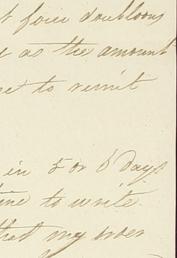 four doubloons
as the amount
to remit
in 5 or 6 Days
time to write
that my order